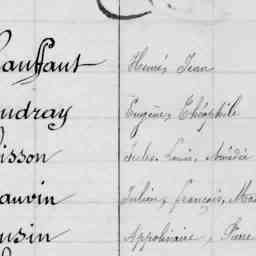 auffant Henri, Jean
udray Eugène, Théophile
isson Jules, Louis, Amédée
auvin Julien, françois, Ma
usin Appolinaire, Pierre